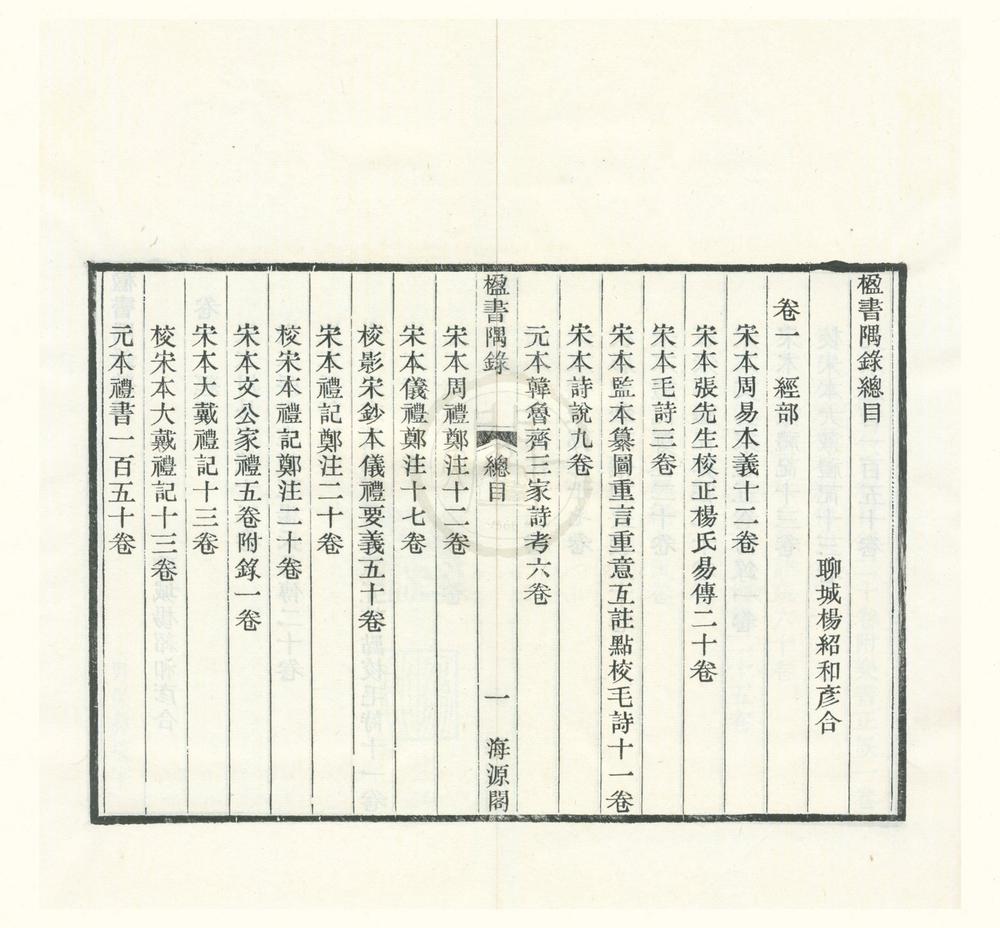 楹書隅錄總目
聊城楊紹和彥合
卷一 經部
宋本周易本義十二卷
宋本張先生校正楊氏易傳二十卷
宋本毛詩三卷
宋本監本纂圖重言重意互註點校毛詩十一卷
宋本詩說九卷
元本韓魯齊三家詩考六卷
楹書隅錄 總目 一 海源閣
宋本周禮鄭注十二卷
宋本儀禮鄭注十七卷
校影宋鈔本儀禮要義五十卷
宋本禮記鄭注二十卷
校宋本禮記鄭注二十卷
宋本文公家禮五卷附錄一卷
宋本大戴禮記十三卷
校宋本大戴禮記十三卷
元本禮書一百五十卷